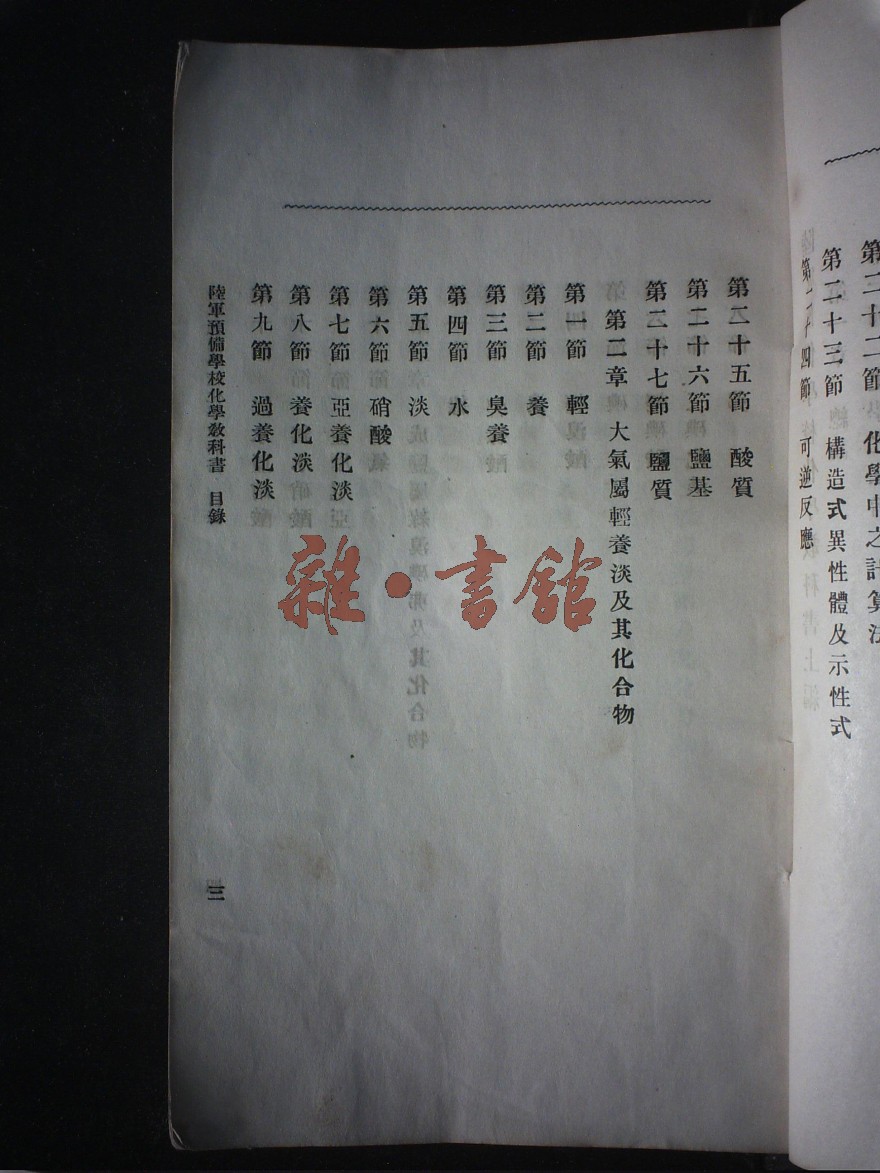 第二十二節 化學中之計算法
第二十三節 構造式異性體及示性式
第二十四節 可逆反應
第二十五節 酸質
第二十六節 鹽基
第二十七節 鹽質
第二章 大氣屬輕養淡及其化合物
第一節 輕
第二節 養
第三節 臭養
第四節 水
第五節 淡
第六節 硝酸
第七節 亞養化淡
第八節 養化淡
第九節 過養化淡
陸軍預備學校化學教科書 目錄
三
雜·書館